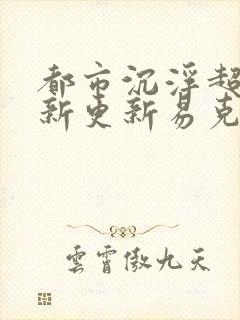 都市沉浮超
新更新易克
雲霄傲九天